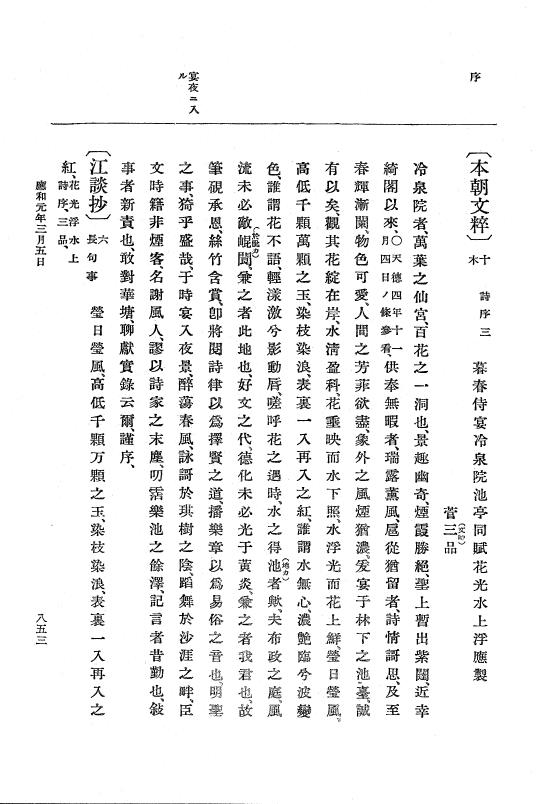 序
宴夜ニ入
ル
〔本朝文粹〕 十 詩序三
木
暮春侍宴冷泉院池亭同賦花光水上浮應製
菅三品(文時)
冷泉院者、萬葉之仙宮、百花之一洞也、景趣幽奇、煙霞勝絕、聖上暫出紫闥、近幸
綺閣以來、〇天德四年十一月四日ノ條參看、供奉無暇者、瑞露薰風、扈從猶留者、詩情謌思、及至
春輝漸闌、物色可愛、人間之芳菲欲盡、象外之風煙猶濃、爰宴于林下之池臺、誠
有以矣、觀其花綻在岸、水淸盈科、花垂映而水下照、水浮光而花上鮮、瑩日瑩風。
高低千顆萬顆之玉、染枝染浪、表裏一入再入之紅、誰謂水無心、濃艷臨兮波變
色、誰謂花不語、輕漾激兮影動唇、嗟呼花之遇時、水之得池(地カ)者歟、夫布政之庭、風
流未必敵崐閬(於脱カ)、兼之者此地也、好文之代、德化未必光于黃炎、兼之者我君也、故
筆硯承恩、絲竹含賞、卽將閱詩律以爲擇賢之道、播樂章以爲易俗之音也、明聖
之事、猗乎盛哉、于時宴入夜景、醉蕩春風、詠謌於琪樹之陰、蹈舞於沙涯之畔、臣
文時籍非煙客、名謝風人、謬以詩家之末塵、叨霑樂池之餘澤、記言者昔勤也、敍
事者新責也、敢對華塘、聊獻實錄云爾、謹序、
〔江談抄〕 六 長句事 瑩日瑩風、高低千顆万顆之玉、染枝染浪、表裏一入再入之
紅、花光浮水上詩序、三品、
應和元年三月五日
八五三